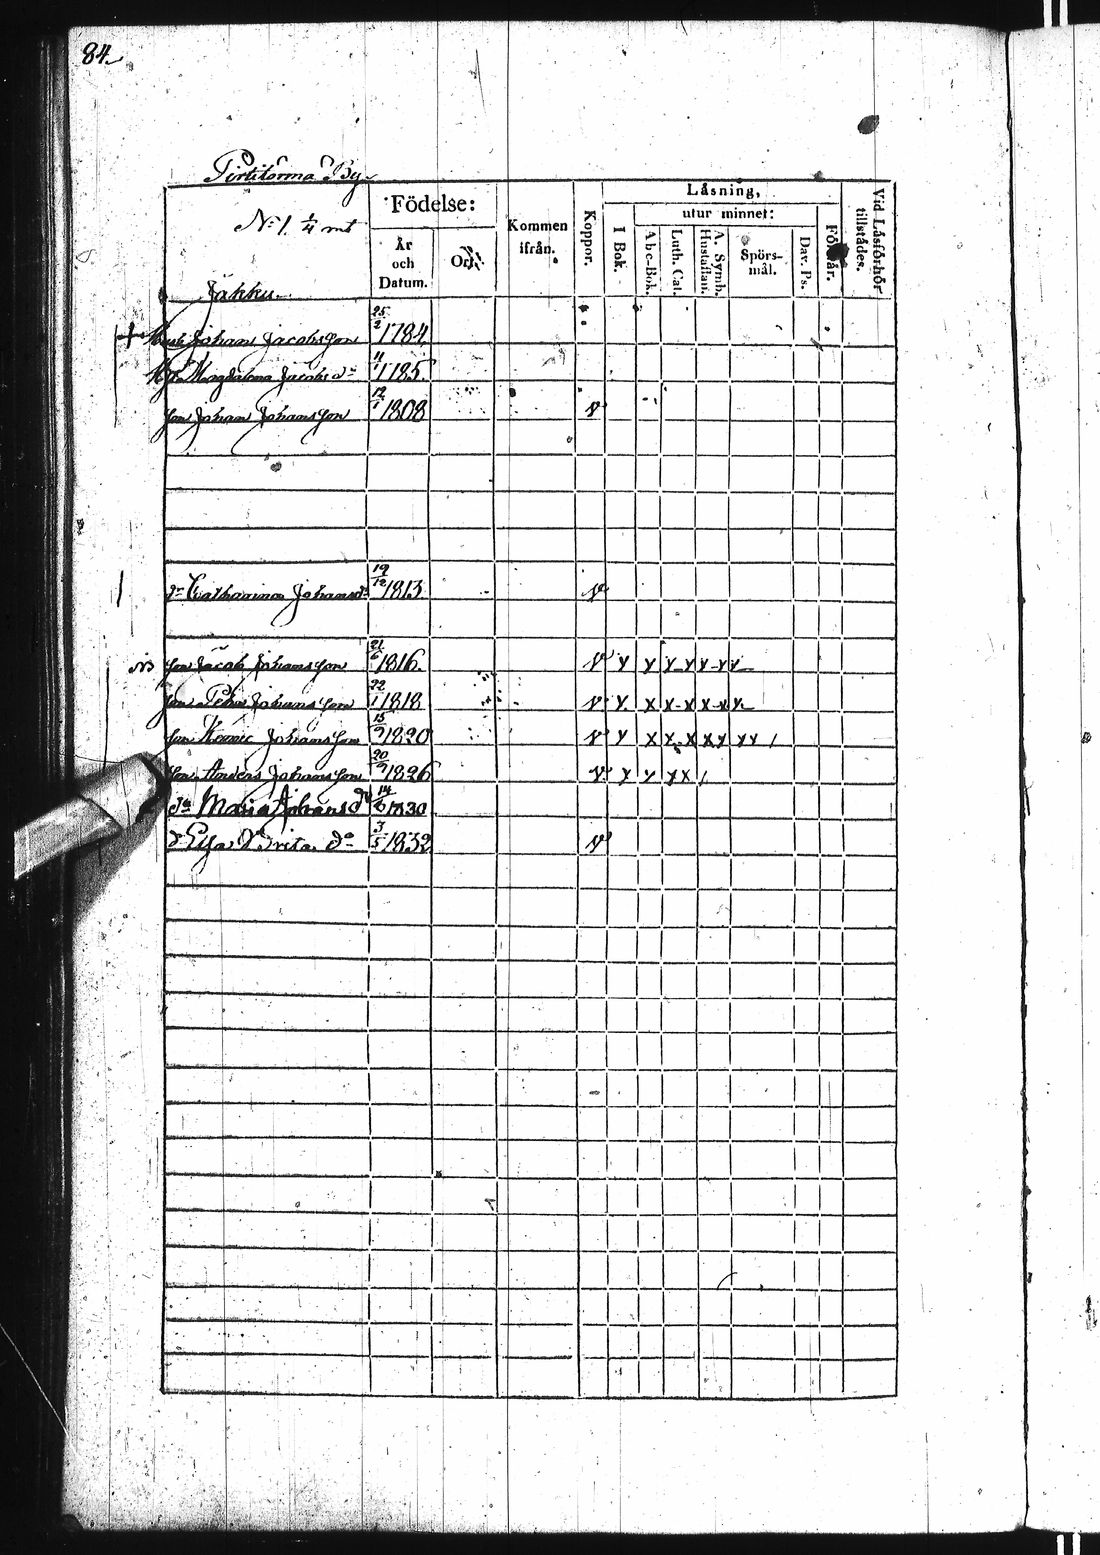 84.
Pirtitörmä By.
N:1 1/4 mt
Födelse:
År och Datum.
Ort.
Kommen ifrån.
Koppor.
Läsning,
I Bok.
utur minnet:
Abc-Bok.
Luth. Cat.
A. Symb. Hustaflan.
Spörsmål.
Dav. Ps.
Förstår.
Vid Läsförhör tillstädes.
Jakku
+ Johan Jacobsson 25/2 1784
Magdalena Jacobsdr 11/1 1785.
Son Johan Johansson 12/1 1808 v
dr Catharina Johansdr 19/12 1813 v
Son Jacob Johansson 21/6 1816. v x x x x x x x
Son Petter Johansson 22/1 1818 v x x x x x x x
Son Johansson 15/9 1820 v x x x x x x x x /
Son Anders Johansson 20/9 1826 v x x x x /
dr Maria Johansdr 14/6 1830
dr Brita do 3/5 1832 v